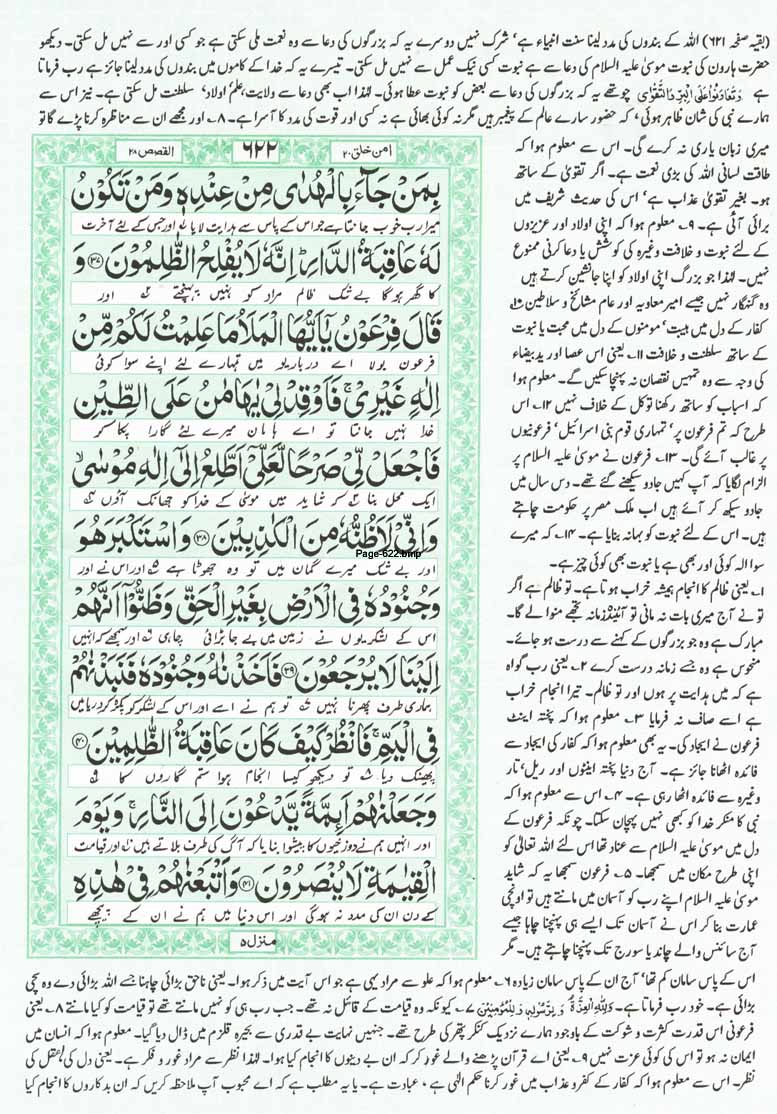 (بقیہ صفحہ ۶۲۱) اللہ کے بندوں کی مدد لینا سنت انبیاء ہے' شرک نہیں دوسرے یہ کہ بزرگوں کی دعا سے وہ نعمت ملی سکتی ہے جو کسی اور سے نہیں مل سکتی۔ دیکھو
حضرت ہارون کی نبوت موسیٰ علیہ السلام کی دعا سے ہے نبوت کسی نیک عمل سے نہیں مل سکتی۔ تیسرے یہ کہ خدا کے کاموں میں بندوں کی مدد لینا جائز ہے رب فرماتا
ہے وَتَعَاوَنُوْا عَلَی الْبِرِّ وَالتَّقْوٰی چوتھے یہ کہ بزرگوں کی دعا سے بعض کو نبوت عطا ہوئی۔ لہٰذا اب بھی دعا سے ولایت' علم' اولاد' سلطنت مل سکتی ہے۔ نیز اس سے
ہمارے نبی کی شان ظاہر ہوئی' کہ حضور سارے عالم کے پیغمبر ہیں مگر نہ کوئی بھائی ہے نہ کسی اور قوت کی مدد کا آسرا ہے۔ ۸۔ اور مجھے ان سے مناظرہ کرنا پڑے گا تو
میری زبان یاری نہ کرے گی۔ اس سے معلوم ہوا کہ
طاقت لسانی اللہ کی بڑی نعمت ہے۔ اگر تقویٰ کے ساتھ
ہو۔ بغیر تقویٰ عذاب ہے' اس کی حدیث شریف میں
برائی آئی ہے۔ ۹۔ معلوم ہوا کہ اپنی اولاد اور عزیزوں
کے لئے نبوت و خلافت وغیرہ کی کوشش یا دعا کرنی ممنوع
نہیں۔ لہٰذا جو بزرگ اپنی اولاد کو اپنا جانشین کرتے ہیں
وہ گنہگار نہیں جیسے امیر معاویہ اور عام مشائخ و سلاطین ۱۰۔
کفار کے دل میں ہیبت' مومنوں کے دل میں محبت یا نبوت
کے ساتھ سلطنت و خلافت ۱۱۔ یعنی اس عصا اور ید بیضاء
کی وجہ سے وہ تمہیں نقصان نہ پہنچا سکیں گے۔ معلوم ہوا
کہ اسباب کو ساتھ رکھنا توکل کے خلاف نہیں ۱۲۔ اس
طرح کہ تم فرعون پر' تمہاری قوم بنی اسرائیل' فرعونیوں
پر غالب آئے گی۔ ۱۳۔ فرعون نے موسیٰ علیہ السلام پر
الزام لگایا کہ آپ کہیں جادو سیکھنے گئے تھے۔ دس سال میں
جادو سیکھ کر آئے ہیں اب ملک مصر پر حکومت چاہتے
ہیں۔ اس کے لئے نبوت کو بہانہ بنایا ہے۔ ۱۴۔ کہ میرے
سوا الہ کوئی اور بھی ہے یا نبوت بھی کوئی چیز ہے۔
۱۔ یعنی ظالم کا انجام ہمیشہ خراب ہوتا ہے۔ تو ظالم ہے اگر
تو نے آج میری بات نہ مانی تو آئندہ زمانہ تجھے منوا لے گا۔
مبارک ہے وہ جو بزرگوں کے کہنے سے درست ہو جائے۔
منحوس ہے وہ جسے زمانہ درست کرے ۲۔ یعنی رب گواہ
ہے کہ میں ہدایت پر ہوں اور تو ظالم۔ تیرا انجام خراب
ہے اسے صاف نہ فرمایا ۳۔ معلوم ہوا کہ پختہ اینٹ
فرعون نے ایجاد کی۔ یہ بھی معلوم ہوا کہ کفار کی ایجاد سے
فائدہ اٹھانا جائز ہے۔ آج دنیا پختہ اینٹوں اور ریل' تار
وغیرہ سے فائدہ اٹھا رہی ہے۔ ۴۔ اس سے معلوم ہوا کہ
نبی کا منکر خدا کو کبھی نہیں پہچان سکتا۔ چونکہ فرعون کے
دل میں موسیٰ علیہ السلام سے عناد تھا اس لئے اللہ تعالیٰ کو
اپنی طرح مکان میں سمجھا۔ ۵۔ فرعون سمجھا یہ کہ شاید
موسیٰ علیہ السلام اپنے رب کو آسمان میں مانتے ہیں تو اونچی
عمارت بنا کر اس نے آسمان تک ایسے ہی پہنچنا چاہا جیسے
آج سائنس والے چاند یا سورج تک پہنچنا چاہتے ہیں۔ مگر
امن خلق ۲۰
۶۲۲
القصص ۲۸
بِمَنْ جَآءَ بِالْهُدٰى مِنْ عِنْدِهٖ وَمَنْ تَكُوْنُ
میرا رب خوب جانتا ہے جو اس کے پاس سے ہدایت لایا اور جس کے لئے آخرت
لَهٗ عَاقِبَةُ الدَّارِ ؕ اِنَّهٗ لَا يُفْلِحُ الظّٰلِمُوْنَ ﴿۳۷﴾ وَ
کا گھر ہوگا بے شک ظالم مراد کو نہیں پہنچتے اور
قَالَ فِرْعَوْنُ يٰۤاَيُّهَا الْمَلَاُ مَا عَلِمْتُ لَكُمْ مِّنْ
فرعون بولا اے درباریو میں تمہارے لئے اپنے سوا کوئی
اِلٰهٍ غَيْرِىْ ۚ فَاَوْقِدْ لِىْ يٰهَامٰنُ عَلَى الطِّيْنِ
خدا نہیں جانتا تو اے ہامان میرے لئے گارا پکا کر
فَاجْعَلْ لِّىْ صَرْحًا لَّعَلِّىْۤ اَطَّلِعُ اِلٰۤى اِلٰهِ مُوْسٰى ۙ
ایک محل بنا کہ شاید میں موسیٰ کے خدا کو جھانک آؤں
وَاِنِّىْ لَاَظُنُّهٗ مِنَ الْكٰذِبِيْنَ ﴿۳۸﴾ وَاسْتَكْبَرَ هُوَ
Page-622.bmp
اور بے شک میرے گمان میں تو وہ جھوٹا ہے اور اس نے اور
وَجُنُوْدُهٗ فِى الْاَرْضِ بِغَيْرِ الْحَقِّ وَظَنُّوْۤا اَنَّهُمْ
اس کے لشکریوں نے زمین میں بے جا بڑائی چاہی اور سمجھے کہ انہیں
اِلَيْنَا لَا يُرْجَعُوْنَ ﴿۳۹﴾ فَاَخَذْنٰهُ وَجُنُوْدَهٗ فَنَبَذْنٰهُمْ
ہماری طرف پھرنا نہیں تو ہم نے اسے اور اس کے لشکر کو پکڑ کر دریا میں
فِى الْيَمِّ ۚ فَانْظُرْ كَيْفَ كَانَ عَاقِبَةُ الظّٰلِمِيْنَ ﴿۴۰﴾
پھینک دیا تو دیکھو کیسا انجام ہوا ستم گاروں کا
وَجَعَلْنٰهُمْ اَئِمَّةً يَّدْعُوْنَ اِلَى النَّارِ ۚ وَيَوْمَ
اور انہیں ہم نے دوزخیوں کا پیشوا بنایا کہ آگ کی طرف بلاتے ہیں اور قیامت
الْقِيٰمَةِ لَا يُنْصَرُوْنَ ﴿۴۱﴾ وَاَتْبَعْنٰهُمْ فِىْ هٰذِهِ
کے دن ان کی مدد نہ ہوگی اور اس دنیا میں ہم نے ان کے پیچھے
منزل ۵
اس کے پاس سامان کم تھا' آج ان کے پاس سامان زیادہ ۶۔ معلوم ہوا کہ علو سے مراد یہی ہے جو اس آیت میں ذکر ہوا۔ یعنی ناحق بڑائی چاہنا جسے اللہ بڑائی دے وہ سچی
بڑائی ہے۔ خود رب فرماتا ہے۔ وَلِلّٰہِ الْعِزَّۃُ وَلِرَسُوْلِہٖ وَلِلْمُؤْمِنِیْنَ ۷۔ کیونکہ وہ قیامت کے قائل نہ تھے۔ جب رب ہی کو نہیں مانتے تھے تو قیامت کو کیا مانتے ۸۔ یعنی
فرعونی اس قدرت کثرت و شوکت کے باوجود ہمارے نزدیک کنکر پتھر کی طرح تھے۔ جنہیں نہایت بے قدری سے بحیرہ قلزم میں ڈال دیا گیا۔ معلوم ہوا کہ انسان میں
ایمان نہ ہو تو اس کی کوئی عزت نہیں ۹۔ یعنی اے قرآن پڑھنے والے غور کر کہ ان بے دینوں کا انجام کیا ہوا۔ لہٰذا نظر سے مراد غور و فکر ہے۔ یعنی دل کی آنکھ عقل کی
نظر۔ اس سے معلوم ہوا کہ کفار کے کفر و عذاب میں غور کرنا حکم الٰہی ہے، عبادت ہے۔ یا یہ مطلب ہے کہ اے محبوب آپ ملاحظہ کریں کہ ان بدکاروں کا انجام کیا